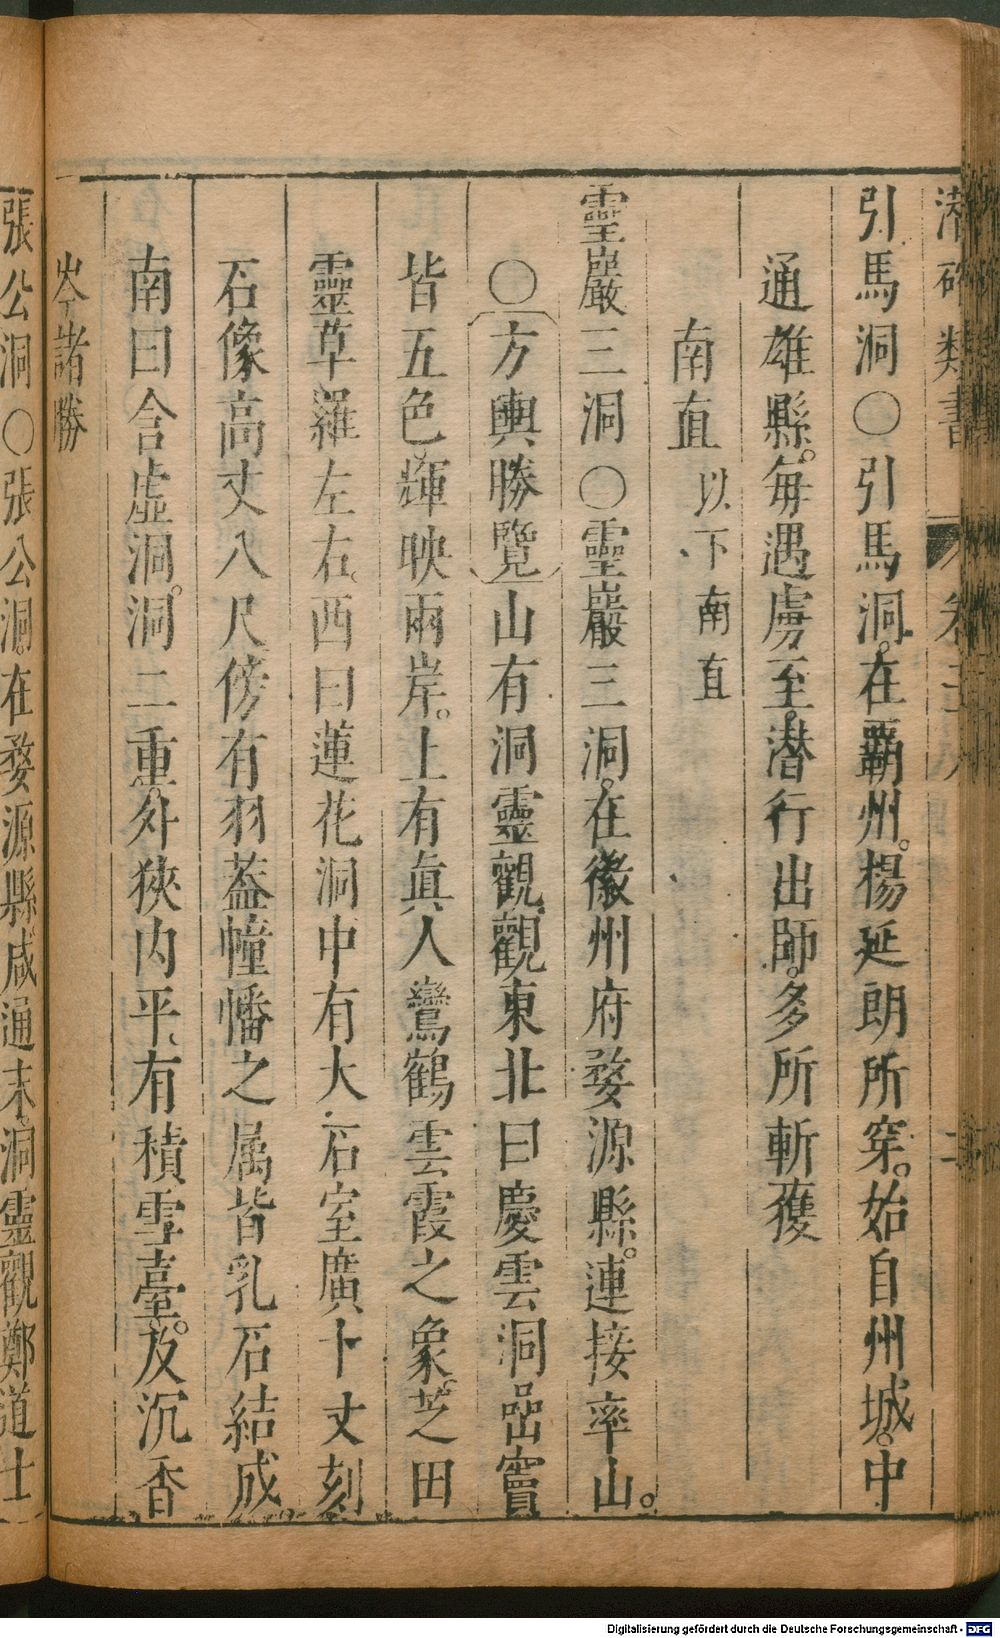 潜確類書 卷二十八 二
引馬洞〇引馬洞。在霸州。楊延朗所穿。始自州城。中
通雄縣。每遇虜至。潜行出師。多所斬獲
南直 以下南直
靈巖三洞〇靈巖三洞。在徽州府婺源縣。連接率山。
〇方輿勝覽山有洞靈觀。觀東北曰慶雲洞嵒竇
皆五色。輝映兩岸。上有眞人鸞鶴雲霞之象。芝田
靈草羅左右。西曰蓮花洞中有大石室廣十丈刻
石像高丈八尺傍有羽蓋幢幡之属皆乳石結成
南曰含虛洞。洞二重。外狹内平。有積雪臺。及沉香
岑諸勝
張公洞〇張公洞。在婺源縣咸通末。洞靈觀鄭道士
Digitalisierung gefördert durch die Deutsche Forschungsgemeinschaft - DFG